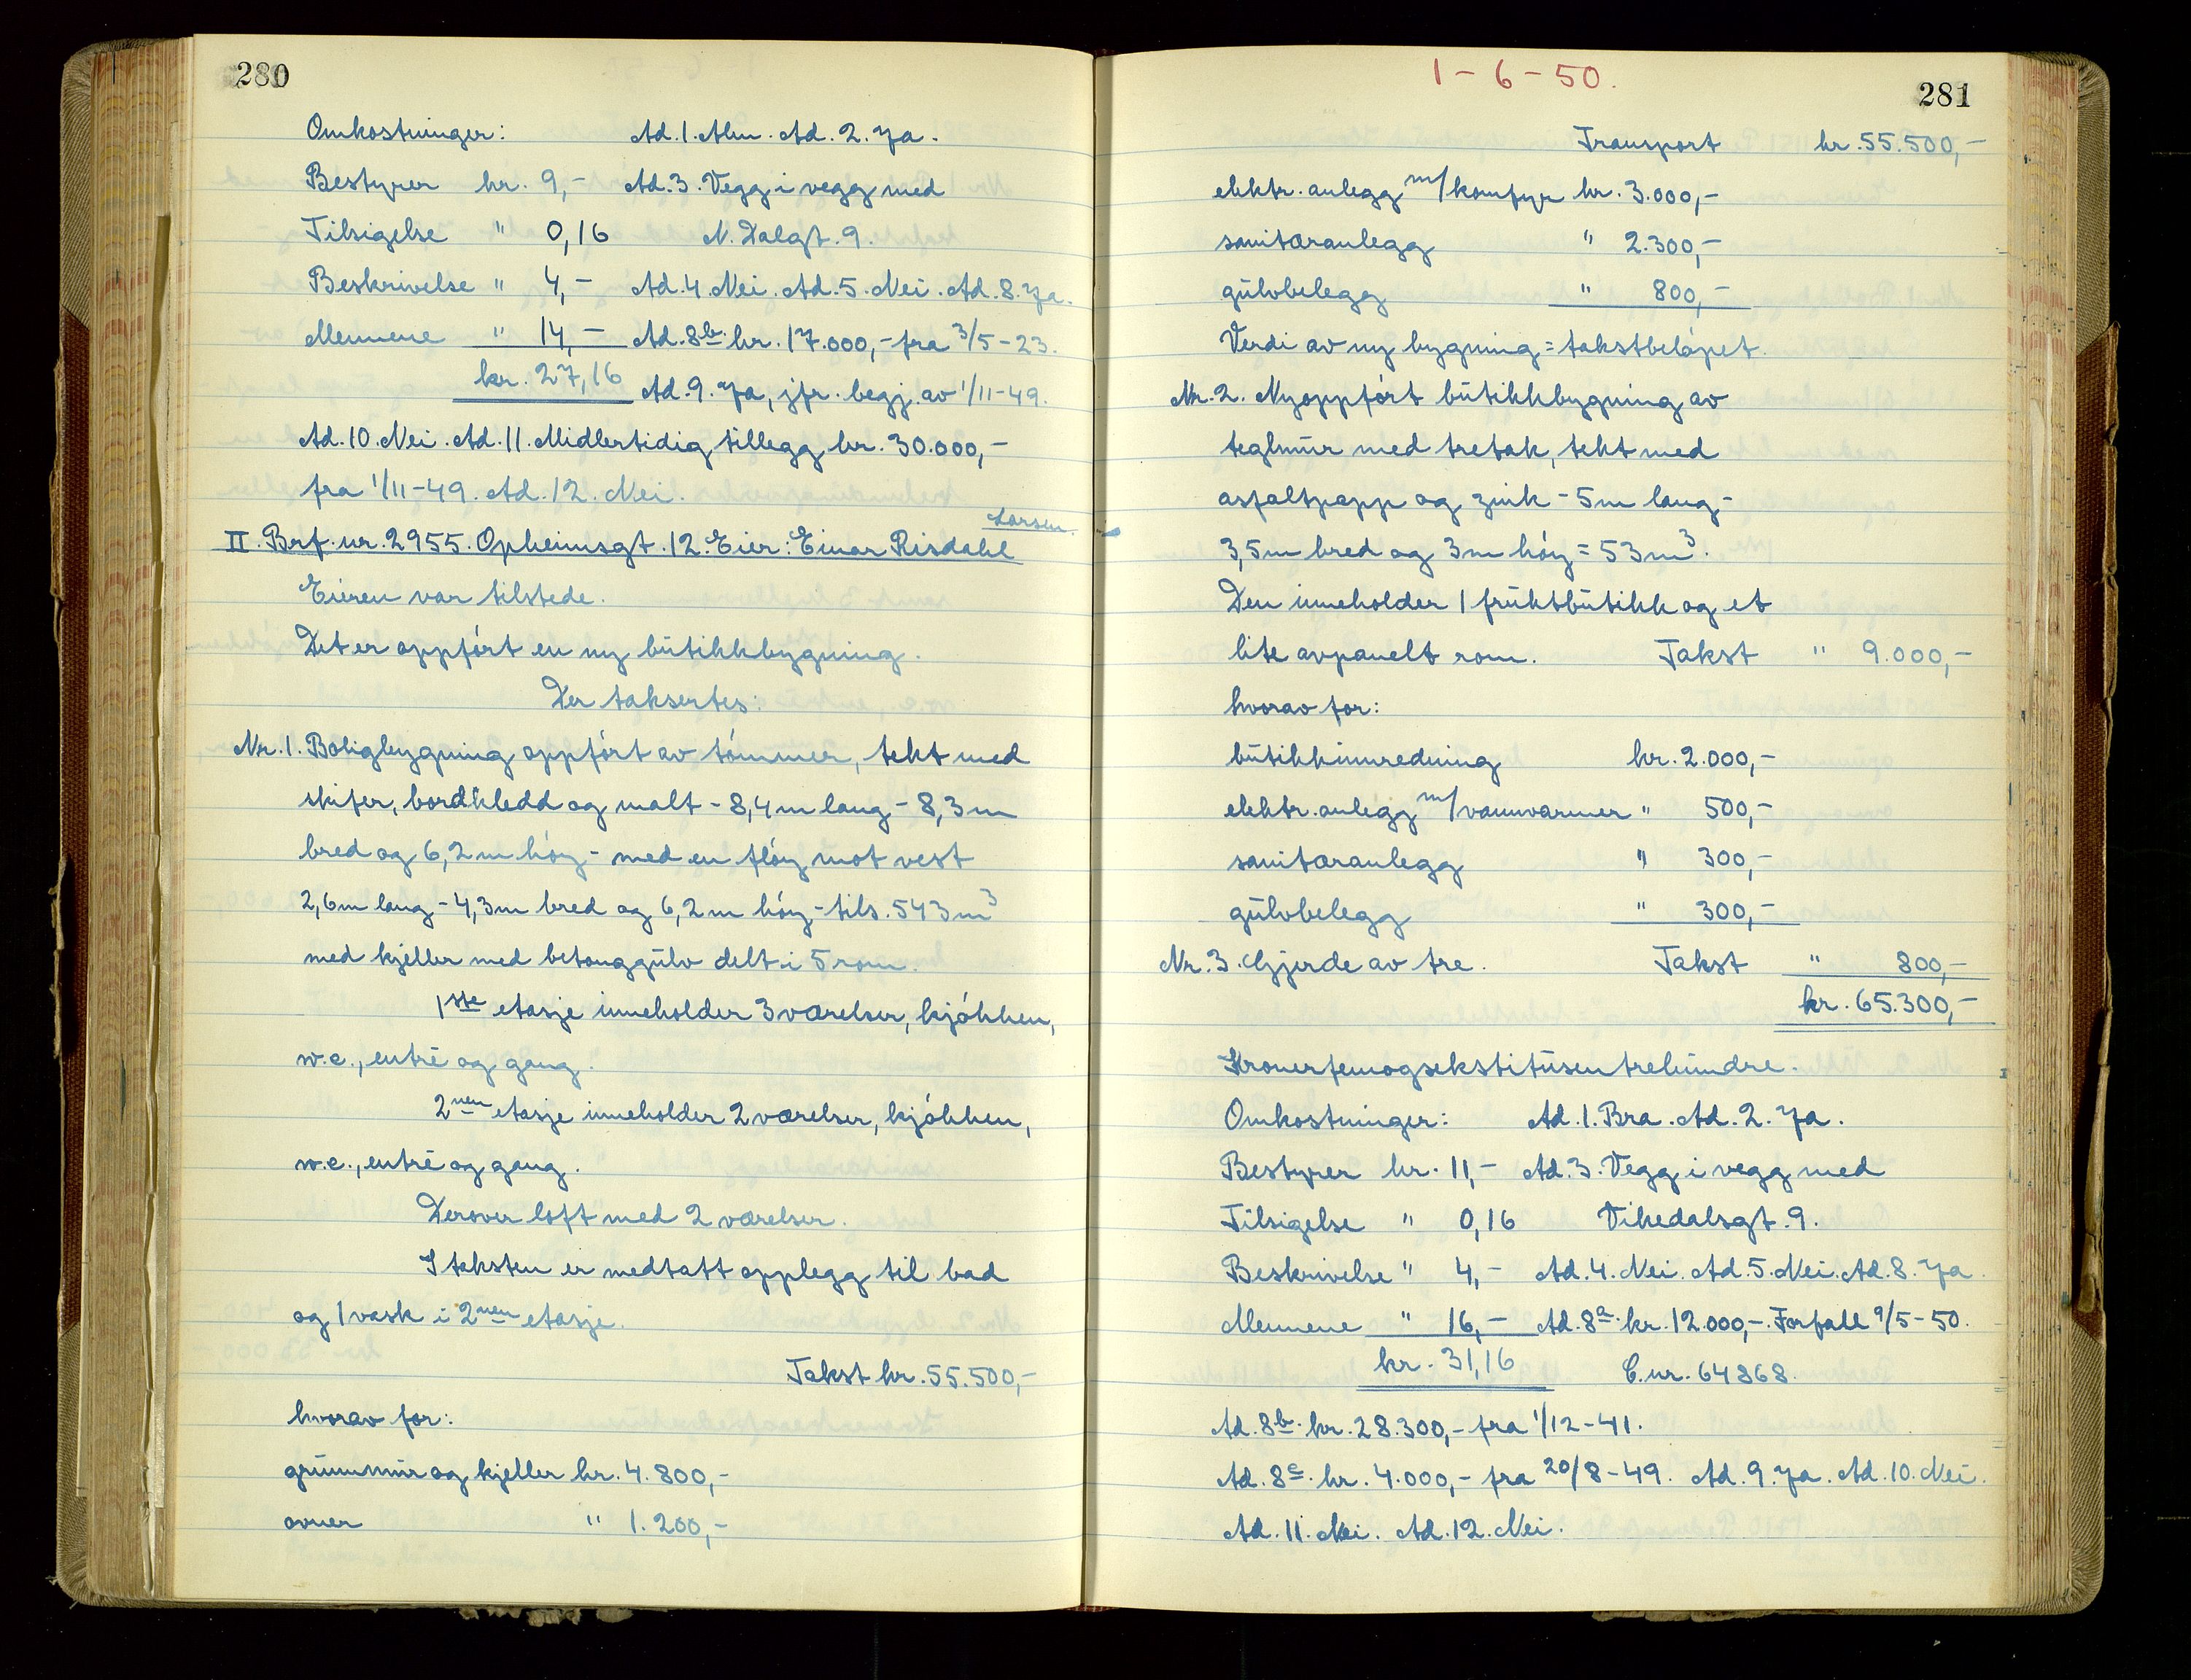 280
Omkostninger: Ad.1.Alm. Ad.2. Ja.
Bestyrer kr. 9,- Ad.3. Vegg i vegg med
Tilsigelse " 0,16 N. Dalgt. 9.
Beskrivelse " 4,- Ad.4. Nei. Ad.5. Nei. Ad.8. Ja.
Mennene " 14,- Ad.8b. kr. 17.000,- fra 3/5-23.
kr. 27,16 Ad.9. Ja, jfr. begj. av 1/11-49.
Ad.10. Nei. Ad.11. Midlertidig tillegg kr. 30.000,-
fra 1/11-49. Ad.12. Nei.
Larsen
II. Brf. nr. 2955. Opheimsgt. 12. Eier: Einar Risdahl
Eieren var tilstede.
Det er oppført en ny butikkbygning.
Der taksertes:
Nr.1. Boligbygning oppført av tømmer, tekt med
skifer, bordkledd og malt - 8,4m lang - 8,3m
bred og 6,2m høy - med en fløy mot vest
2,6m lang - 4,3m bred og 6,2m høy - tils. 543m3
med kjeller med betonggulv delt i 5 rom.
1ste etasje inneholder 3 værelser, kjøkken,
w.c., entré og gang.
2nen etasje inneholder 2 værelser, kjøkken,
w.c., entré og gang.
Derover loft med 2 værelser.
I taksten er medtatt opplegg til bad
og 1 vask i 2nen etasje.
Takst kr. 55.500,-
hvorav for:
grunnmur og kjeller kr. 4.800,-
ovner " 1.200,-
1-6-50.
281
Transport kr. 55.500,-
elektr. anlegg m/komfyr kr. 3.000,-
sanitæranlegg " 2.300,-
gulvbelegg " 800,-
Verdi av ny bygning = takstbeløpet.
Nr.2. Nyoppført butikkbygning av
teglmur med tretak, tekt med
asfaltpapp og zink - 5m lang -
3,5m bred og 3m høy = 53m3.
Den inneholder 1 fruktbutikk og et
lite avpanelt rom. Takst " 9.000,-
hvorav for:
butikkinnredning kr. 2.000,-
elektr. anlegg m/vannvarmer " 500,-
sanitæranlegg " 300,-
gulvbelegg " 300,-
Nr.3. Gjerde av tre. Takst " 800,-
kr. 65.300,-
Kronerfemogsekstitusentrehundre.
Omkostninger: Ad.1. Bra. Ad.2. Ja.
Bestyrer kr. 11,- Ad.3. Vegg i vegg med
Tilsigelse " 0,16 Vikedalsgt. 9.
Beskrivelse " 4,- Ad.4. Nei. Ad.5. Nei. Ad.8. Ja.
Mennene " 16,- Ad.8a. kr. 12.000,-. Forfall 9/5-50.
kr. 31,16 C. nr. 64868.
Ad.8b. kr. 28.300,- fra 1/12-41.
Ad.8c. kr. 4.000,- fra 20/8-49. Ad.9. Ja. Ad.10. Nei.
Ad.11. Nei. Ad.12. Nei.